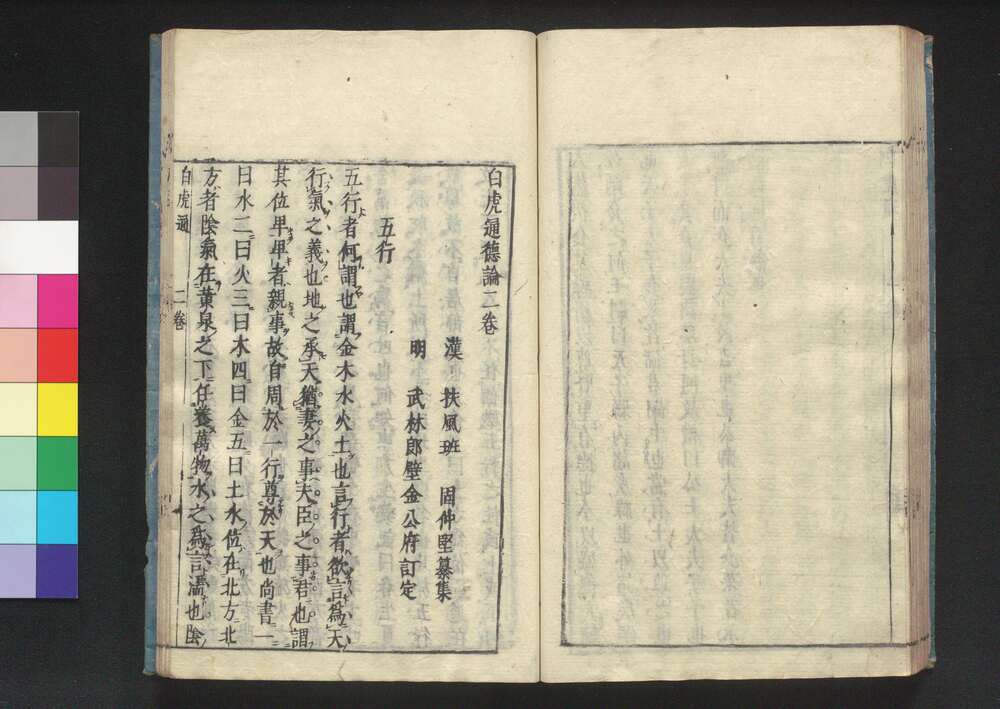 白虎通德論二卷
漢 扶風班 固仲堅纂集
明 武林郎壁金公府訂定
五行
五行者何謂也謂金木水火土也言行者欲言爲天
行氣之義也地之承天猶妻之事夫臣之事君也謂
其位卑卑者親事故自周於一行尊於天也尚書一
曰水二曰火三曰木四曰金五曰土水位在北方北
方者陰氣在黃泉之下任養萬物水之爲言濡也陰
白虎通 二卷